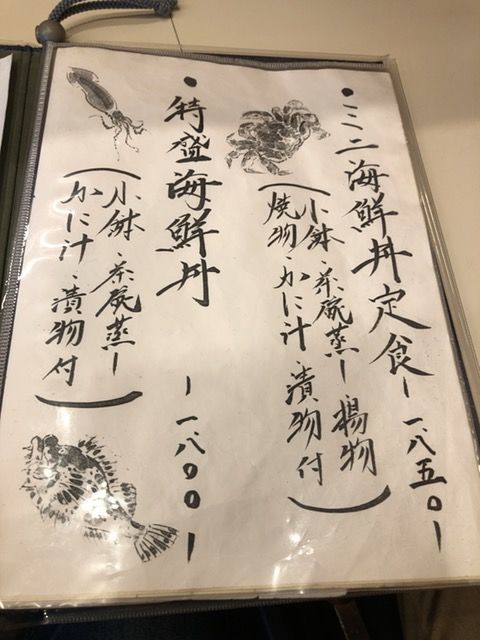 ・ミニ海鮮丼定食ー一、八五〇ー
(小鉢、茶碗蒸し、揚物
焼物、かに汁、漬物付)
・特盛海鮮丼 ー一、八〇〇ー
(小鉢、茶碗蒸し
かに汁、漬物付)